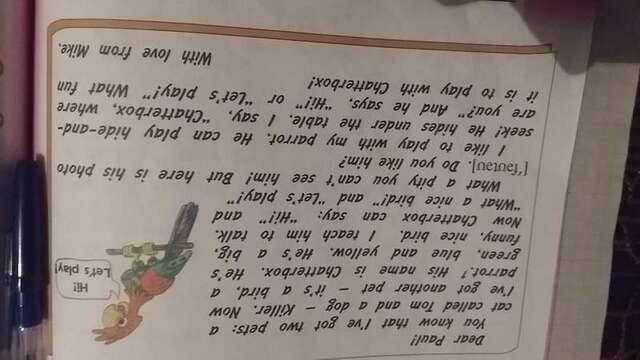 Dear Paul!
You know that I've got two pets: a
cat called Tom and a dog – Killer. Now
I've got another pet – it's a bird, a
parrot.¹ His name is Chatterbox. He's
green, blue and yellow. He's a big,
funny, nice bird. I teach him to talk.
Now Chatterbox can say: "Hi!" and
"What a nice bird!" and "Let's play!"
What a pity you can't see him! But here is his photo
['fəʊtəʊ]. Do you like him?
I like to play with my parrot. He can play hide-and-
seek! He hides under the table. I say, "Chatterbox, where
are you?" And he says, "Hi!" or "Let's play!" What fun
it is to play with Chatterbox!
With love from Mike.
Hi!
Let's play!